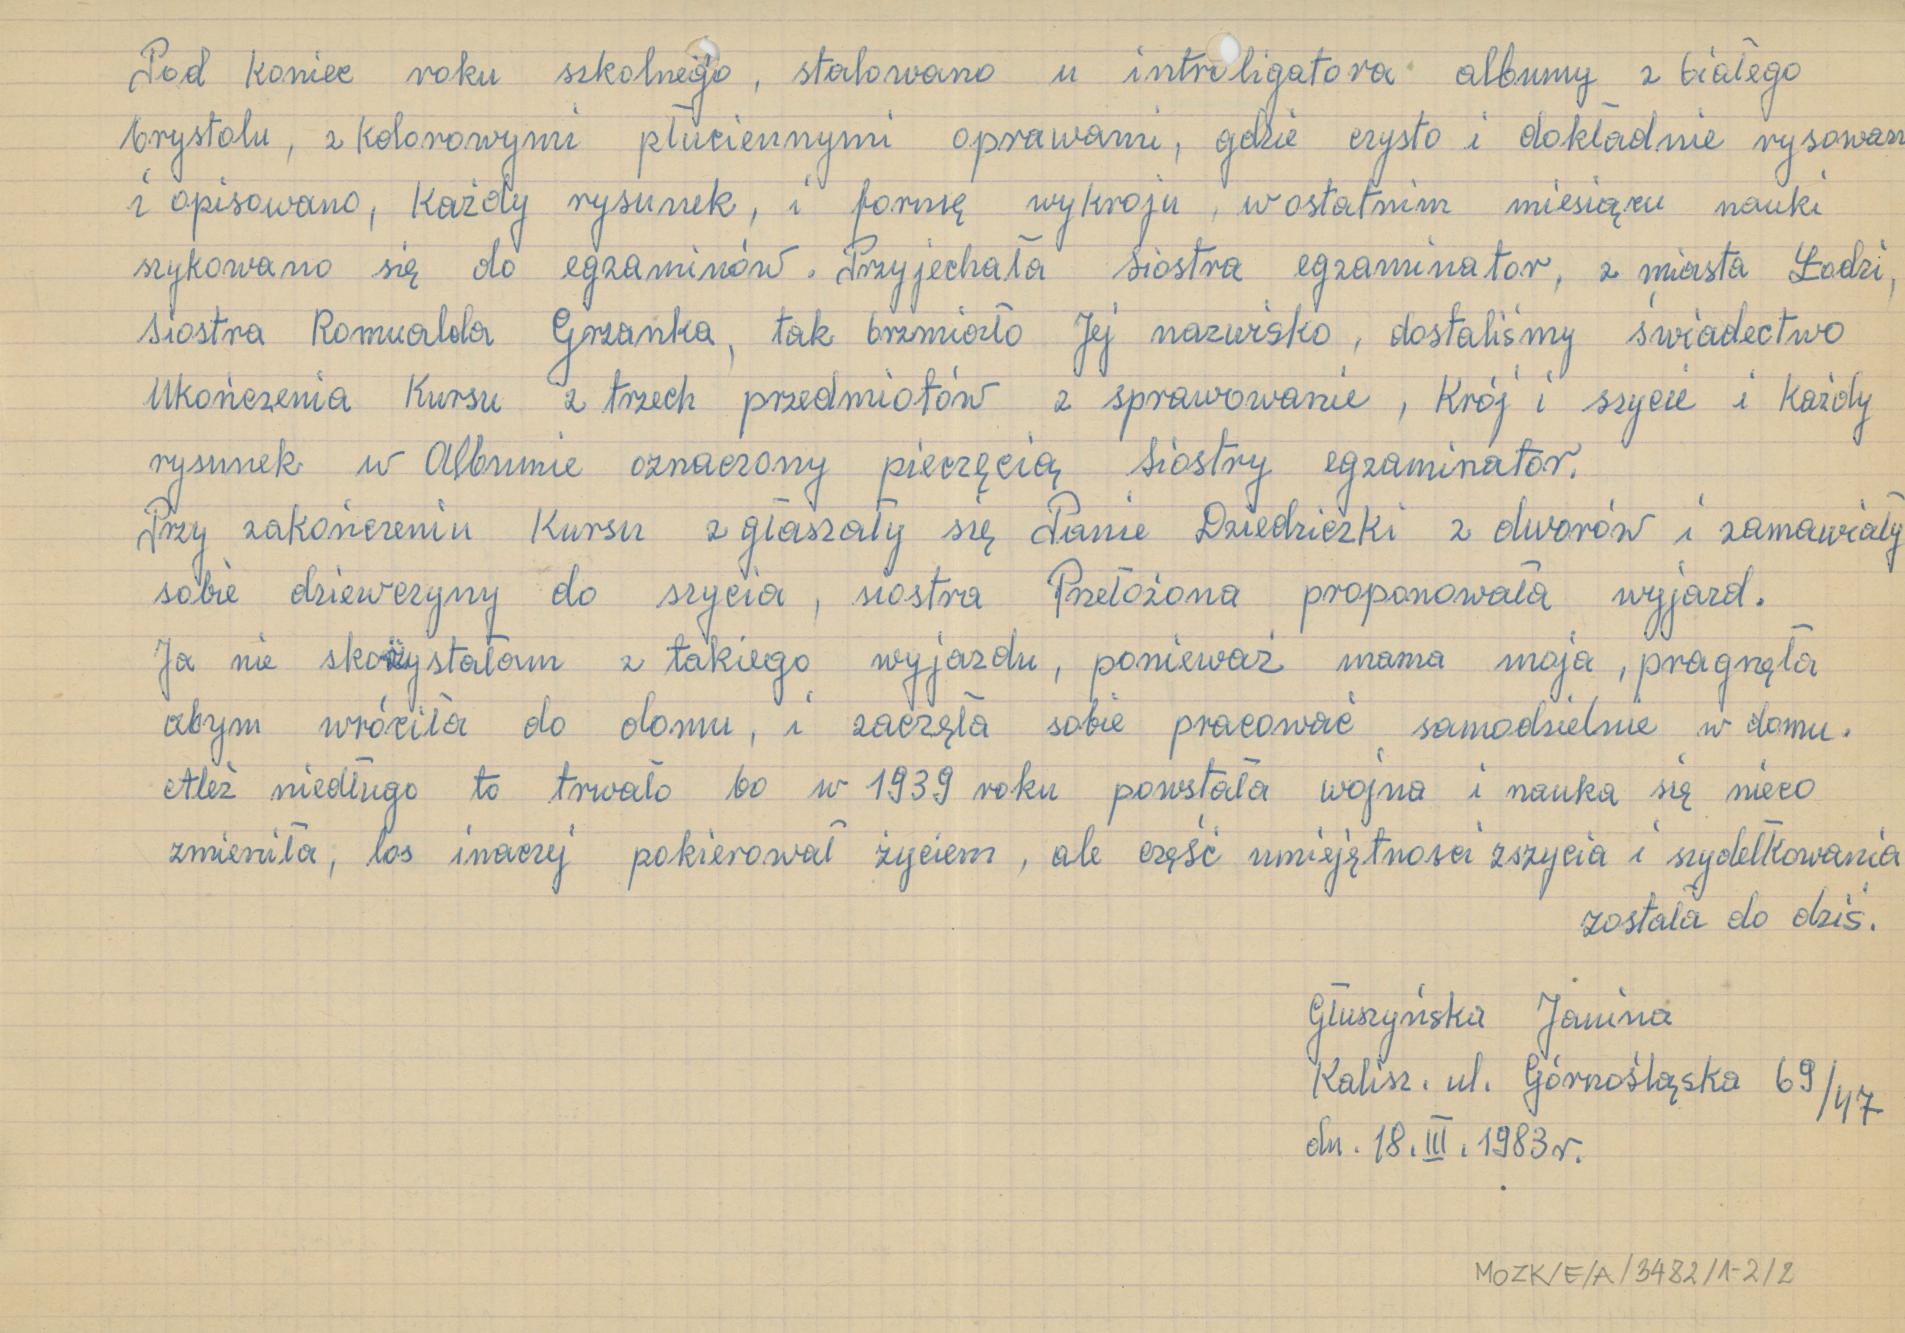 Pod koniec roku szkolnego, stalowano u introligatora albumy z białego
brystolu, z kolorowymi płuciennymi oprawami, gdzie czysto i dokładnie rysowan
i opisowano, każdy rysunek, i formę wykroju, w ostatnim miesiącu nauki
szykowano się do egzaminów. Przyjechała siostra egzaminator, z miasta Łodzi,
siostra Romualda Grzanka, tak brzmiało Jej nazwisko, dostaliśmy świadectwo
Ukończenia Kursu z trzech przedmiotów z sprawowanie, Krój i szycie i każdy
rysunek w Albumie oznaczony pieczęcią siostry egzaminator.
Przy zakończeniu Kursu zgłaszały się Panie Dziedziczki z dworów i zamawiały
sobie dziewczyny do szycia, siostra Przełożona proponowała wyjazd.
Ja nie skożystałam z takiego wyjazdu, ponieważ mama moja, pragnęła
abym wróciła do domu, i zaczęła sobie pracować samodzielnie w domu.
Ależ niedługo to trwało bo w 1939 roku powstała wojna i nauka się nieco
zmieniła, los inaczej pokierował życiem, ale część umiejętności zszycia i szydełkowania
została do dziś.
Głuszyńska Janina
Kalisz. ul. Górnośląska 69/47
dn. 18. III. 1983 r.
MOZK/E/A/3482/1-2/2